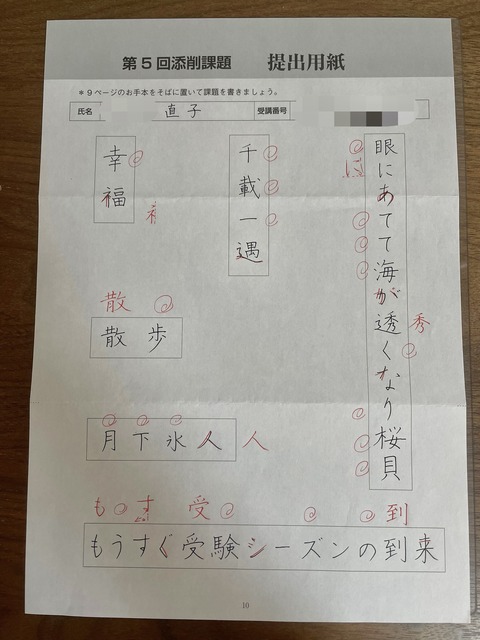 第5回添削課題 提出用紙
*9ページのお手本をそばに置いて課題を書きましょう。
氏名 直子 受講番号
眼にあてて海が透くなり桜貝
に
秀
千載一遇
幸福
ネ
散
散歩
月下氷人
人
も す 受 到
もうすぐ受験シーズンの到来
10